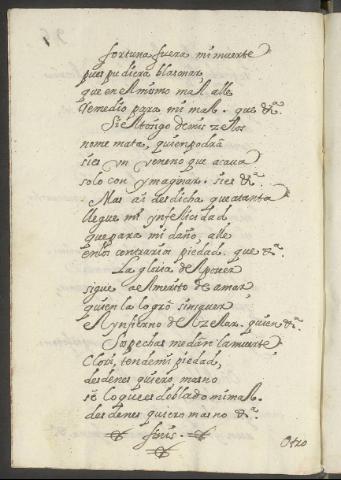 fortuna, fuera mi muerte
pues pudiera blasonar,
que en el mismo mal alle
remedio para mi mal. que &ª.
Si el tosigo de mis zelos
no me mata, quien podra
si es un veneno que acava
solo con ymaginar. si es &ª.
Mas ai desdicha que a tanta
llegue mi ynfelicidad
que para mi daño, alle
en los contrarios piedad. que &ª.
La gloria de
sigue al merito de amar
quien la logrò sin iguer
el ynfierno del zelar. quien &ª.
Sospechas me dan la muerte
Clori, ten de mi piedad,
desdenes quiero, mas no
se lo que es doblado mi mal.
desdenes quiero mas no &ª.
finis.
Otro